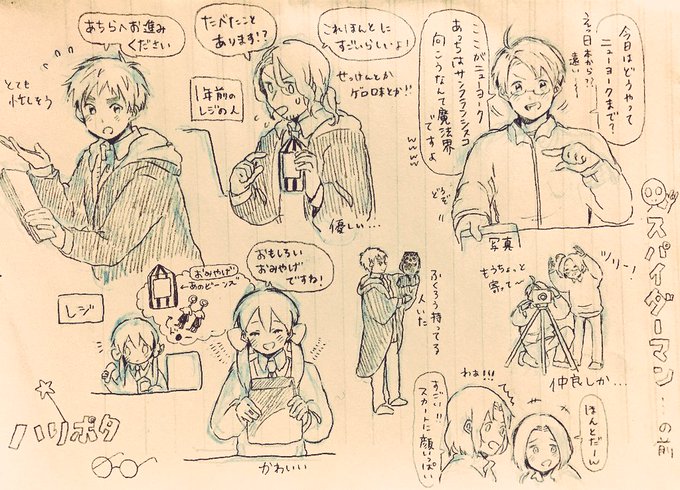 スパイダーマン…の前
今日はどうやって
ニューヨークまで?
えっ日本から??
遠い!
ここがニューヨーク
あっちはサンフランシスコ
向こうなんて魔法界
ですよ
wwww
どうぞ!!
写真
もうちょっと
寄って〜
ツリー!
仲良しか…
これほんとに
すごいらしいよ!
せっけんとか
ゲロ味とか!!
たべたこと
あります!?
1年前の
レジの人
優しい…
あちらへお進み
ください
とても
忙しそう
ハリポタ
レジ
おみやげ
←あのビーンズ
おもしろい
おみやげ
ですね!
かわいい
ふくろう持ってる
人いた
わぁ!!!
すごい!!
スカートに顔いっぱい
ほんとだーん